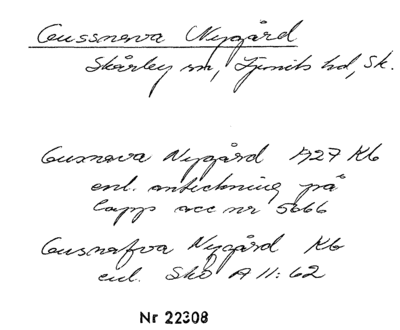 Gussnava Nygård
Skårby sn, Ljunits hd, Sk.
Gusnava Nygård 1927 Kb
enl. anteckning på
lapp acc nr 5666
Gusnafva Nygård Kb
enl. SkO A II: 62
Nr 22308